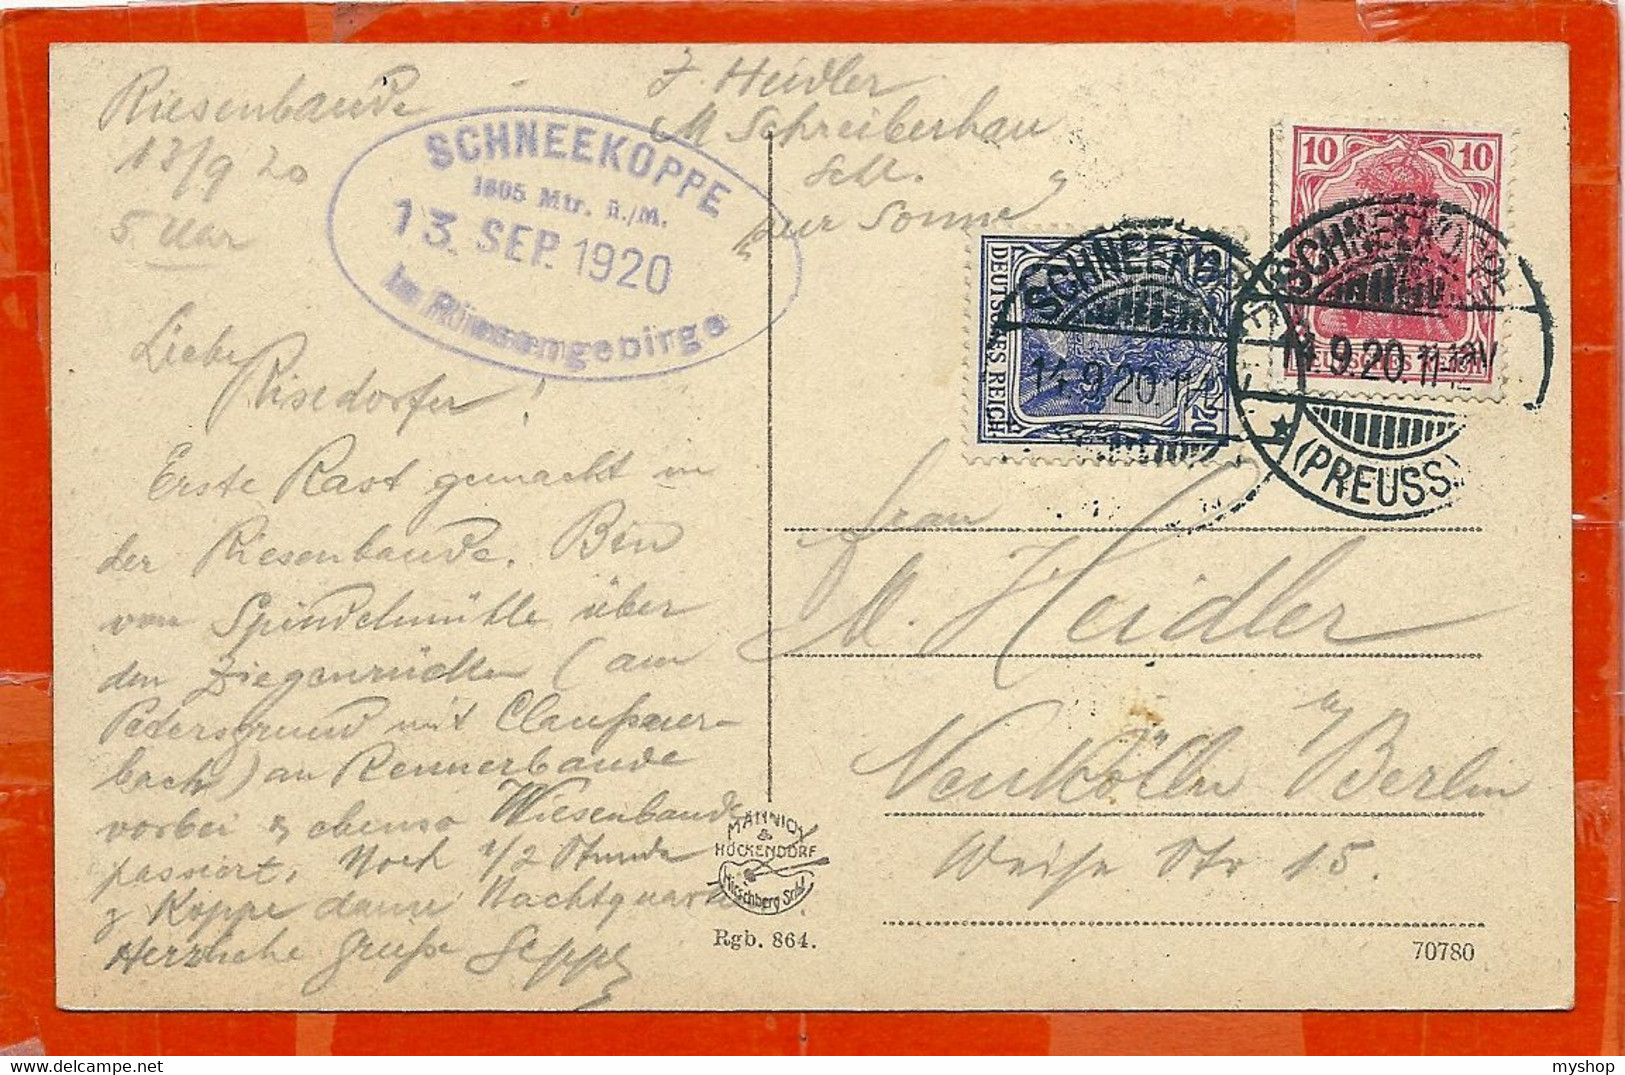 Riesenbaude
13/9 20
5 Uhr
SCHNEEKOPPE
1605 Mtr. ü./M.
13. SEP. 1920
im Riesengebirge
J. Heidler
M Schreiberhau
Schl.
zur Sonne
Liebe
Risedorfer!
Erste Rast gemacht in
der Riesenbaude. Bin
von Spindelmühle über
den Ziegenrücken (am
Petersgrund mit Clausner-
bach) an Rennerbaude
vorbei & ebenso Wiesenbaude
passiert. Noch 1/2 Stunde
z Koppe dann Nachtquart
Herzliche Grüße Seppl
10 10
DEUTSCHES REICH
SCHNEEKOPPE
14.9.20.11-12V
(PREUSS.)
20
DEUTSCHES REICH
SCHNEEKOPPE
14.9.20.11-12
Frau
M. Heidler
Neukölln b/ Berlin
Weise Str 15.
MANNICH
&
HÖCKENDORF
Hirschberg Schl.
Rgb. 864.
70780
myshop